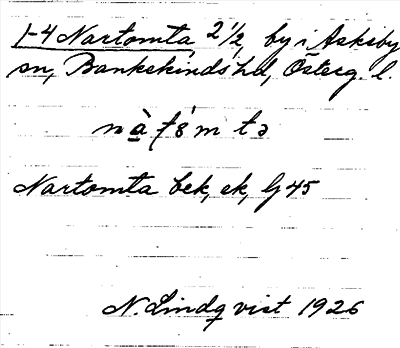 1-4 Nartomta 2 1/2, by i Askeby
sn, Bankekinds hd, Österg. l.
Nartomta bek, ek, Gj 45
N. Lindqvist 1926